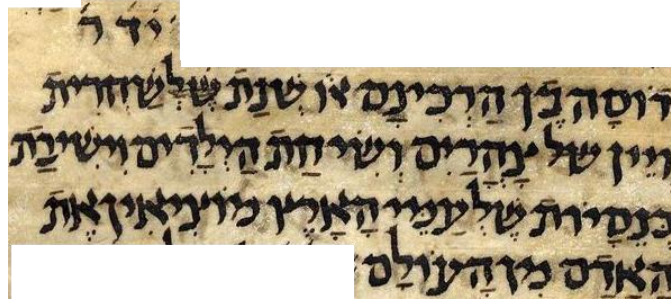 יד ר
דוֹסָה בֶּן הַרְכִּינָס או שְׁנַת שֶׁלְשַׁחֲרִית
וְיֵין שֶׁל צָהֳרַיִם וְשִׂיחַת הַיְלָדִים וִישִׁיבַת
כְּנֵסִיּוֹת שֶׁלְעַמֵּי הָאָרֶץ מוֹצִיאִין אֶת
הָאָדָם מִן הָעוֹלָם